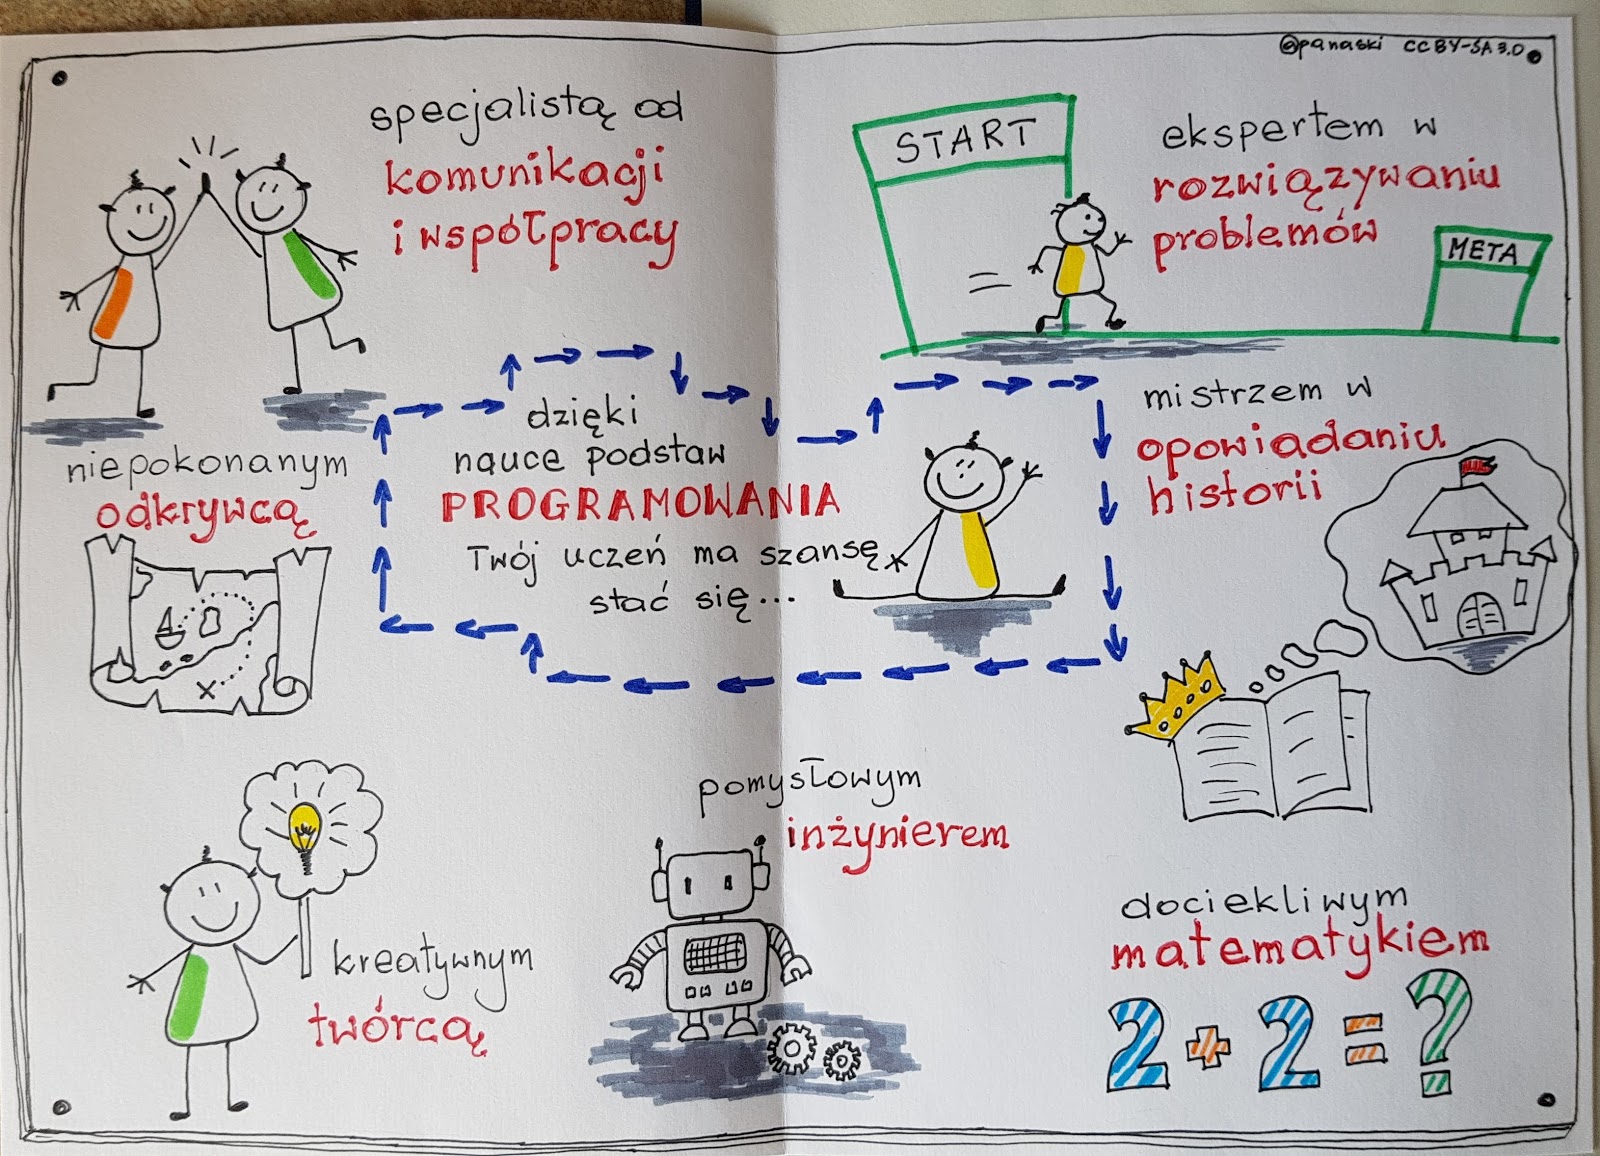 @panaski CC BY-SA 3.0
specjalistą od
komunikacji
i współpracy
START
META
ekspertem w
rozwiązywaniu
problemów
dzięki
nauce podstaw
PROGRAMOWANIA
Twój uczeń ma szansę
stać się...
mistrzem w
opowiadaniu
historii
niepokonanym
odkrywcą
pomysłowym
inżynierem
kreatywnym
twórcą
dociekliwym
matematykiem
2+2=?